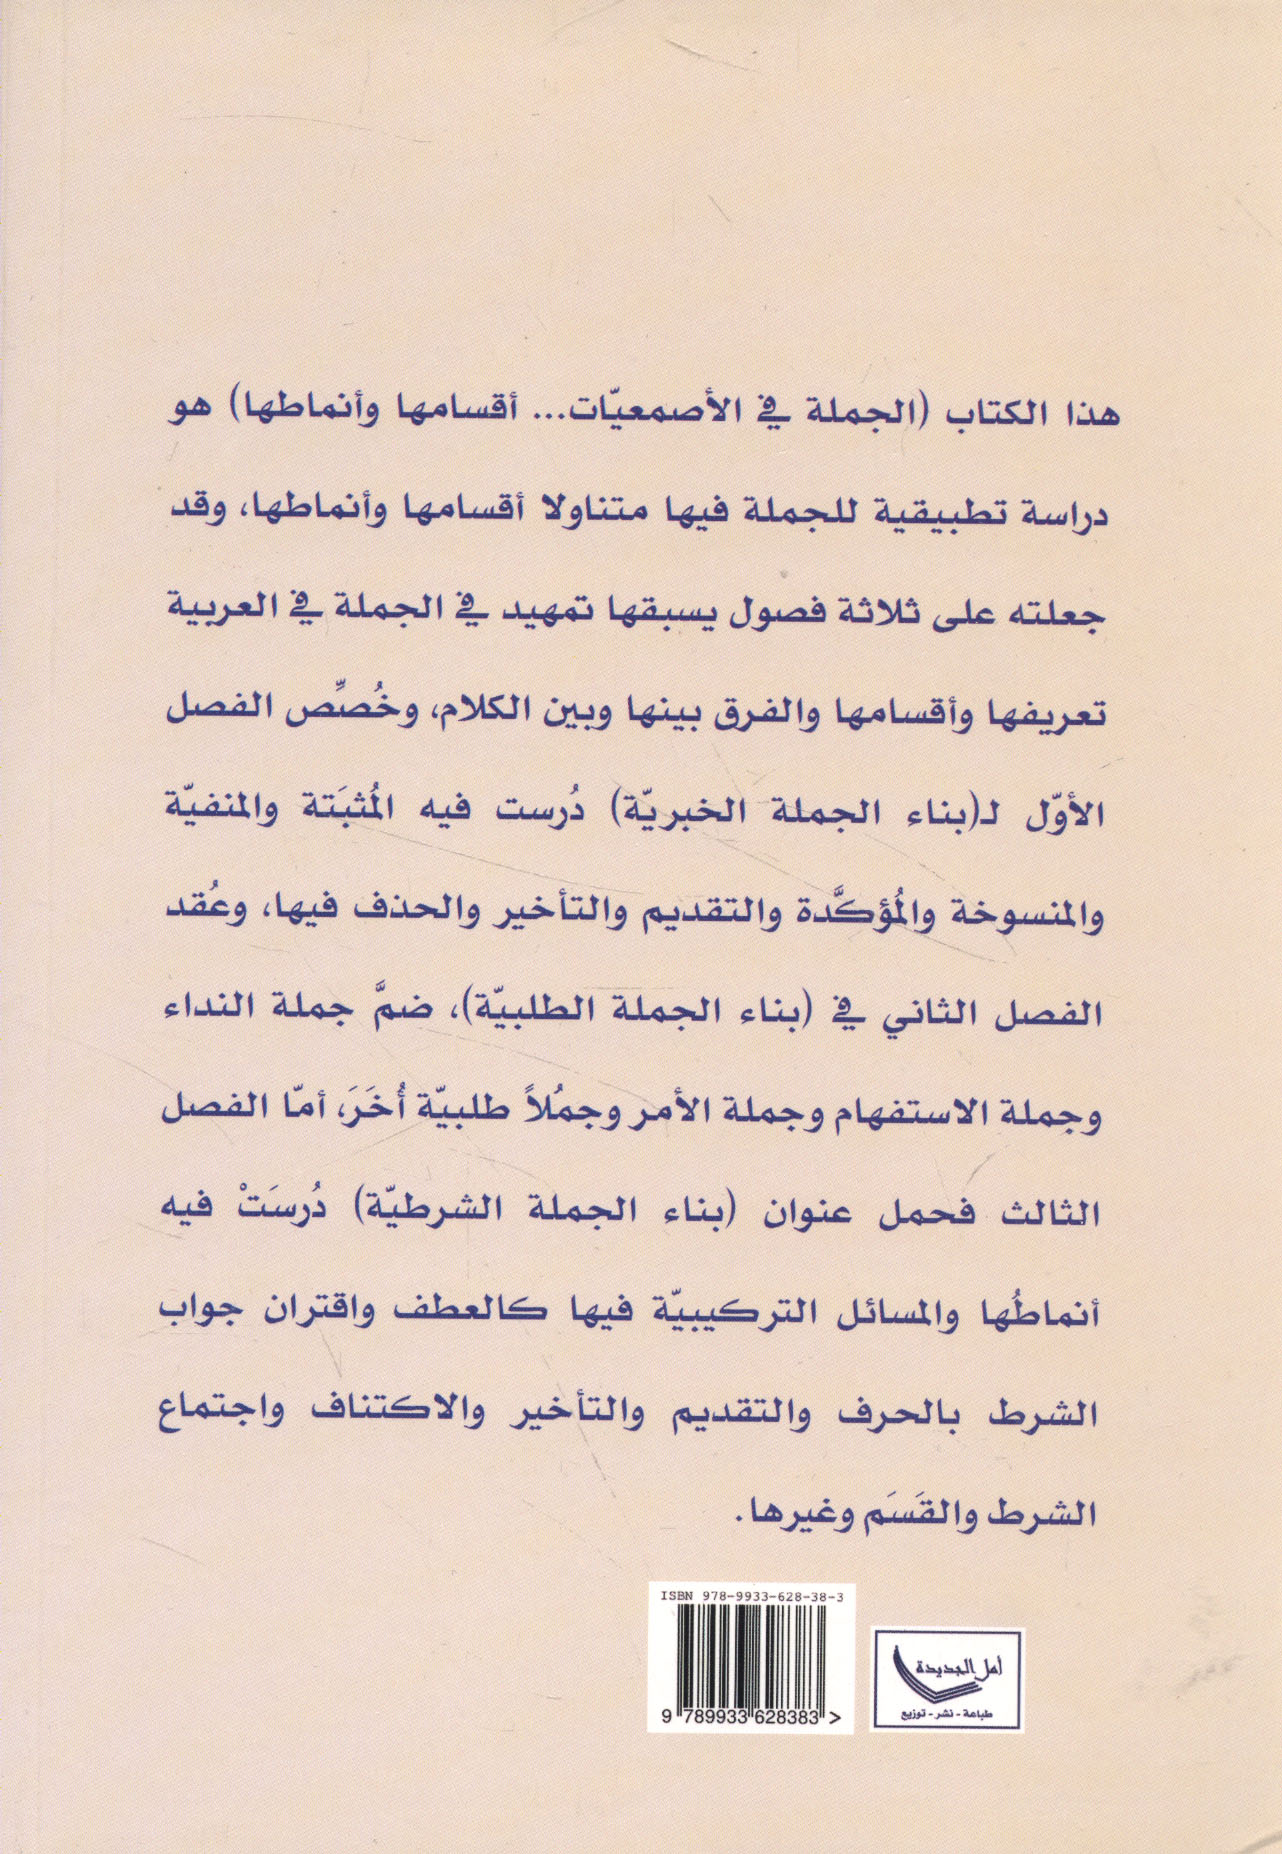 هذا الكتاب (الجملة في الأصمعيّات... أقسامها وأنماطها) هو
دراسة تطبيقية للجملة فيها متناولا أقسامها وأنماطها، وقد
جعلته على ثلاثة فصول يسبقها تمهيد في الجملة في العربية
تعريفها وأقسامها والفرق بينها وبين الكلام، وخُصِّص الفصل
الأوّل لـ(بناء الجملة الخبريّة) دُرست فيه المُثبَتة والمنفيّة
والمنسوخة والمُؤكَّدة والتقديم والتأخير والحذف فيها، وعُقد
الفصل الثاني في (بناء الجملة الطلبيّة)، ضمَّ جملة النداء
وجملة الاستفهام وجملة الأمر وجمُلاً طلبيّة أُخَرَ، أمّا الفصل
الثالث فحمل عنوان (بناء الجملة الشرطيّة) دُرسَتْ فيه
أنماطُها والمسائل التركيبيّة فيها كالعطف واقتران جواب
الشرط بالحرف والتقديم والتأخير والاكتناف واجتماع
الشرط والقَسَم وغيرها.
ISBN 978-9933-628-38-3
9 789933 628383 >
أمل الجديدة
طباعة - نشر - توزيع